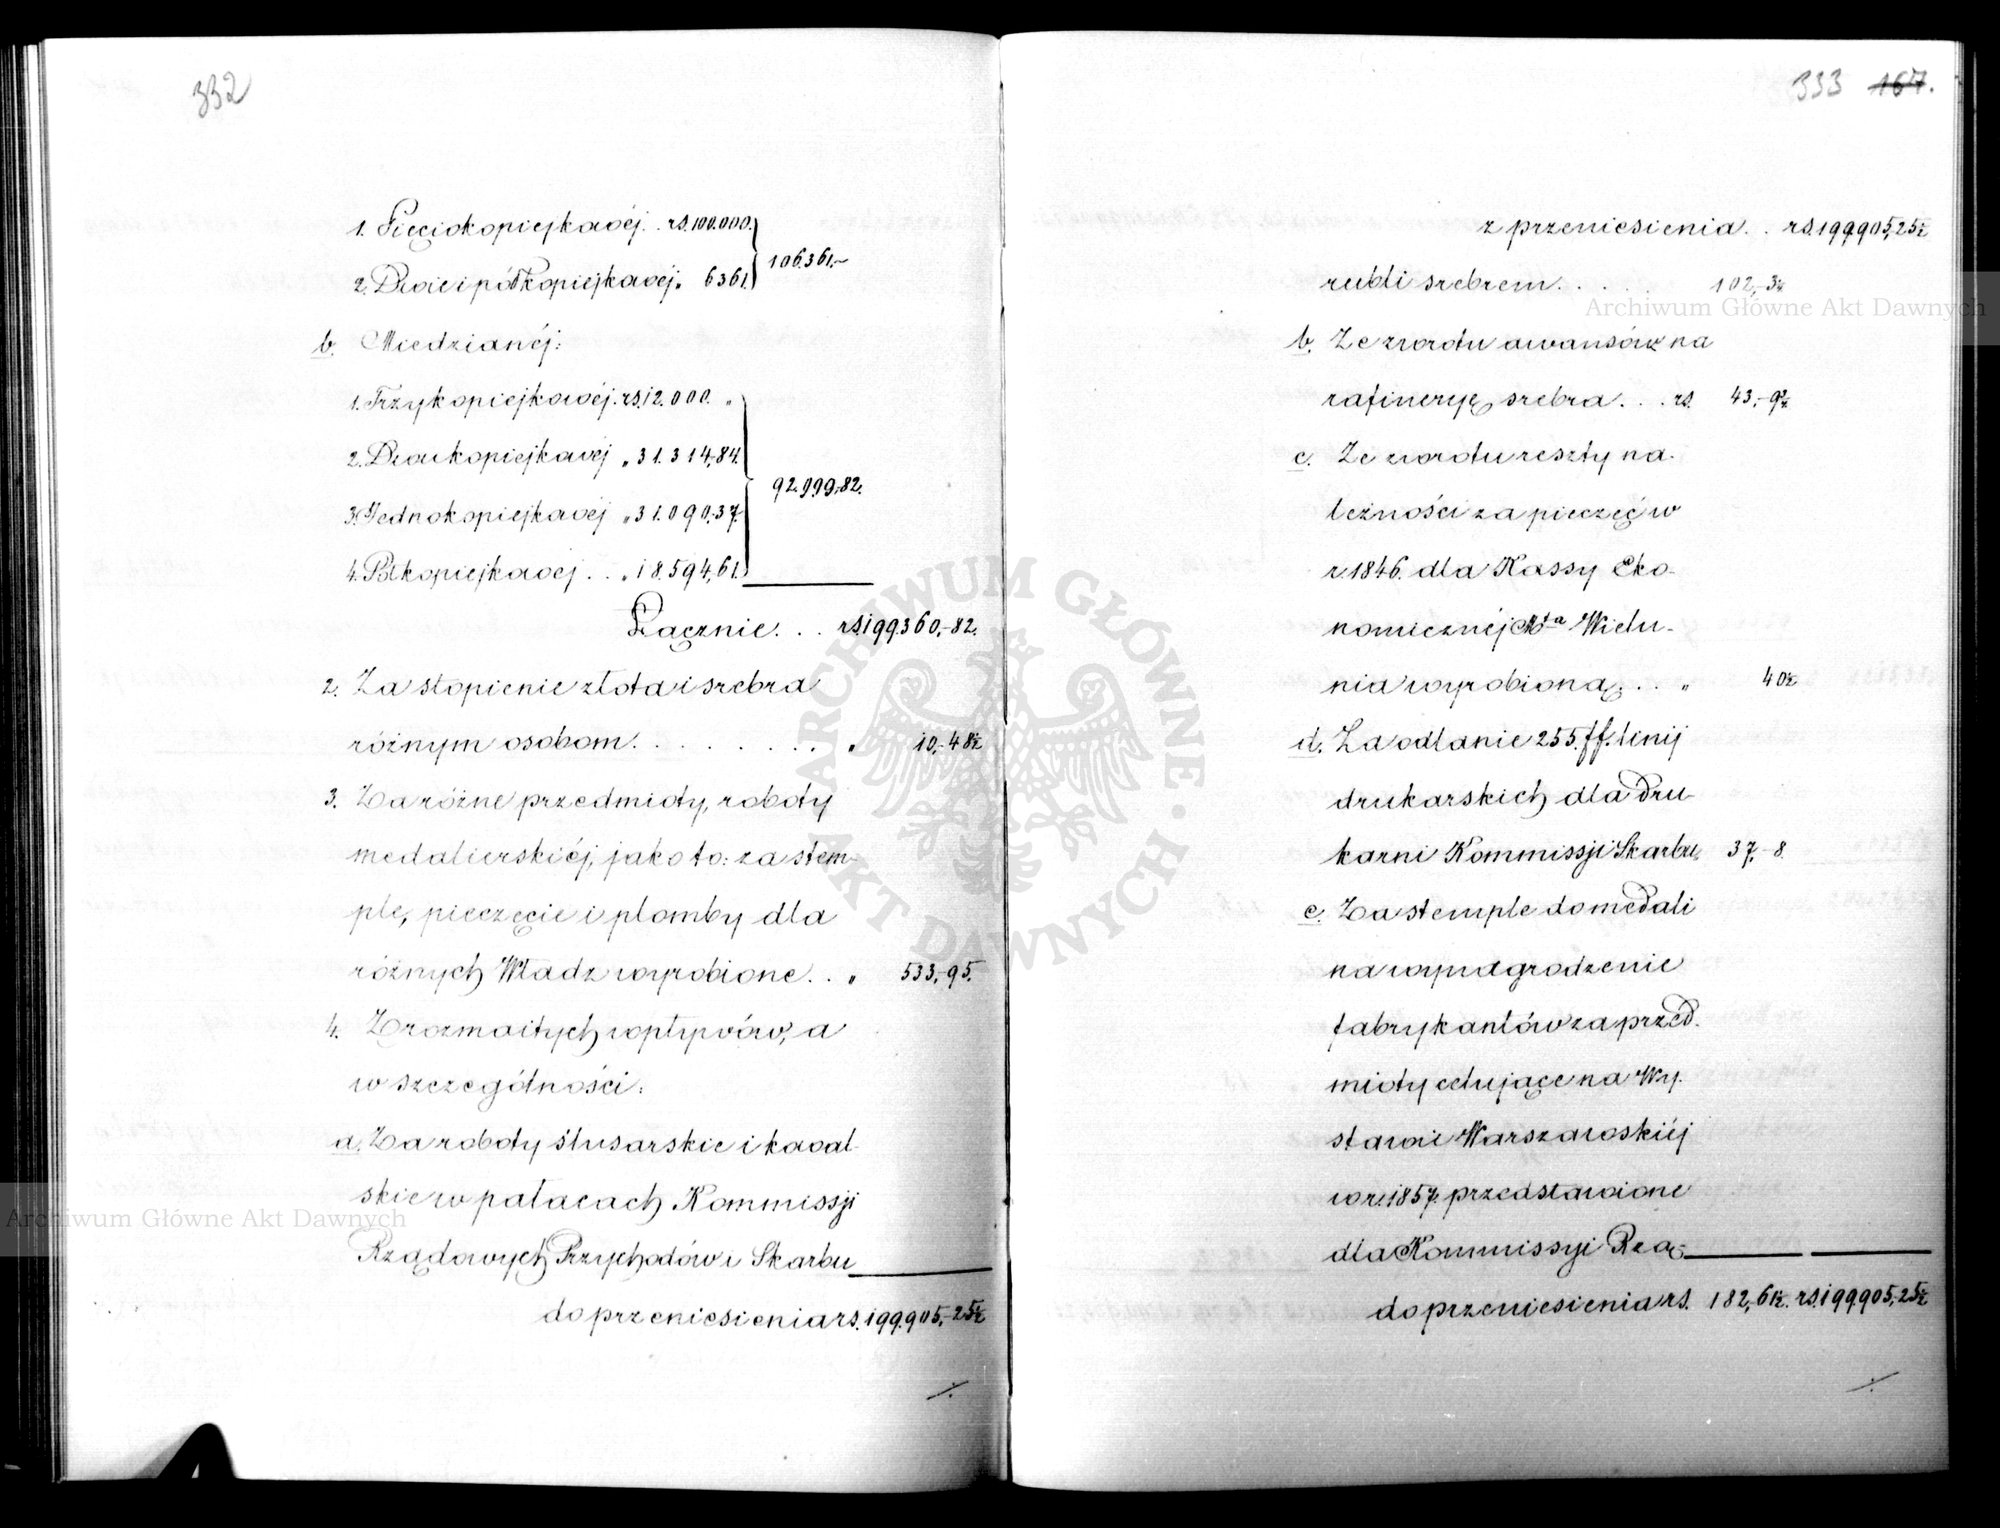 332
1. Pięciokopiejkowéj . . rs. 100.000.
106.361.–
2. Dwieipółkopiejkowéj „ 6361.
b. Miedzianéj:
1. Trzykopiejkowéj. rs. 12.000. „
2. Dwukopiejkowéj „ 31.314,84.
92.999,82.
3. Jednokopiejkowéj „ 31.090,37.
4. Półkopiejkowéj . . „ 18.594,61.
Łącznie . . . rs. 199.360,–82.
2. Za stopienie złota i srebra
różnym osobom . . . . . . . . „ 10,–48½
3. Za różne przedmioty, roboty
medalierskiéj, jako to: za stem-
ple, pieczęcie i plomby dla
różnych Władz wyrobione . . „ 533,–95.
4. Z rozmaitych wpływów, a
w szczególności:
a. Za roboty ślusarskie i kowal-
skie w pałacach Kommissji
Rządowych Przychodów i Skarbu
do przeniesienia rs. 199.905,–25½
333 167.
z przeniesienia . . rs. 199.905,25½
rubli srebrem . . . . . 102,–3½
b. Ze zwrotu awansów na
rafineryę srebra . . . rs. 43,–9½
c. Ze zwrotu reszty na-
leżności za pieczęć w
r. 1846. dla Kassy Eko-
nomicznéj Mta Wielu-
nia wyrobioną . . „ 40½
d. Za odlanie 255. ff. linij
drukarskich dla Dru-
karni Kommissji Skarbu 37,–8.
e. Za stemple do medali
na wynagrodzenie
fabrykantów za przed-
mioty celujące na Wy-
stawie Warszawskiéj
w r. 1857. przedstawione
dla Kommissyi Rzą-
do przeniesienia rs. 182,–61½. rs. 199.905,25½
Archiwum Główne Akt Dawnych
Archiwum Główne Akt Dawnych
ARCHIWUM GŁÓWNE · AKT DAWNYCH ·